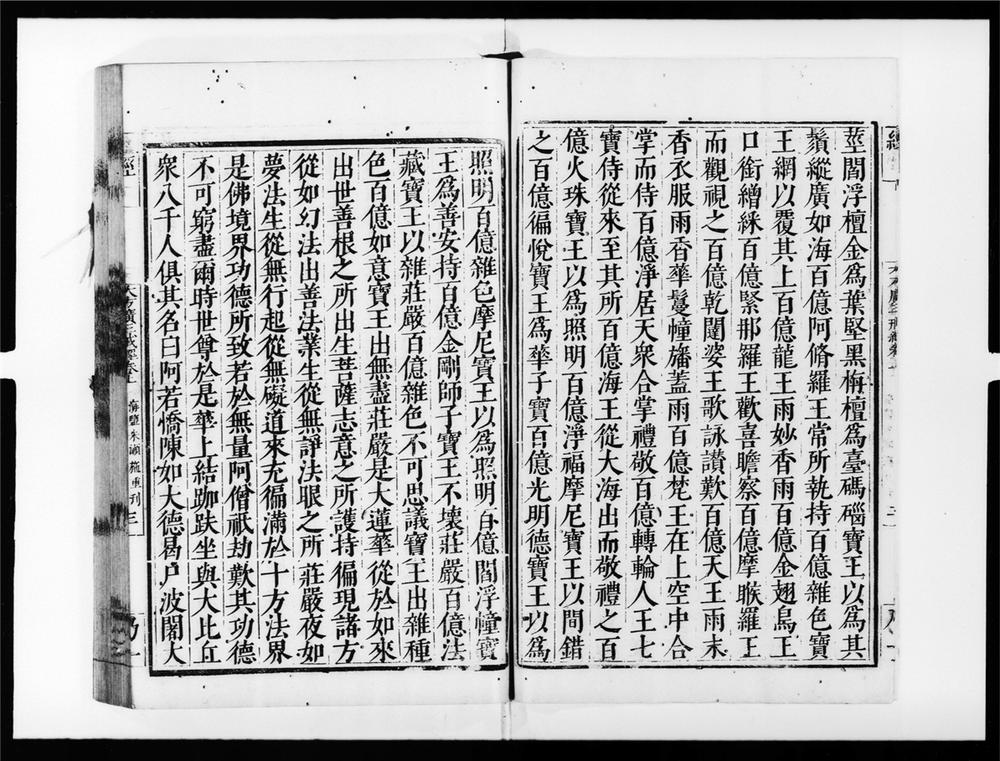 莖閻浮檀金為葉堅黑栴檀為臺碼碯寶王以為其
鬚縱廣如海百億阿脩羅王常所執持百億雜色寶
王網以覆其上百億龍王雨妙香雨百億金翅鳥王
口銜繒綵百億緊那羅王歡喜瞻察百億摩睺羅王
而觀視之百億乾闥婆王歌詠讃歎百億天王雨末
香衣服雨香華鬘幢旛蓋雨百億梵王在上空中合
掌而侍百億淨居天眾合掌禮敬百億轉輪人王七
寶侍從來至其所百億海王從大海出而敬禮之百
億火珠寶王以為照明百億淨福摩尼寶王以間錯
之百億徧悅寶王為華子寶百億光明德寶王以為
照明百億雜色摩尼寶王以為照明百億閻浮幢寶
王為善安持百億金剛師子寶王不壞莊嚴百億法
藏寶王以雜莊嚴百億雜色不可思議寶王出雜種
色百億如意寶王出無盡莊嚴是大蓮華從於如來
出世善根之所出生菩薩志意之所護持徧現諸方
從如幻法出善法業生從無諍法眼之所莊嚴夜如
夢法生從無行起從無礙道來充徧滿於十方法界
是佛境界功德所致若於無量阿僧祇劫歎其功德
不可窮盡爾時世尊於是華上結跏趺坐與大比丘
眾八千人俱其名曰阿若憍陳如大德曷戸波闍大
經
大方廣三戒經卷上
海鹽朱 重刊
三